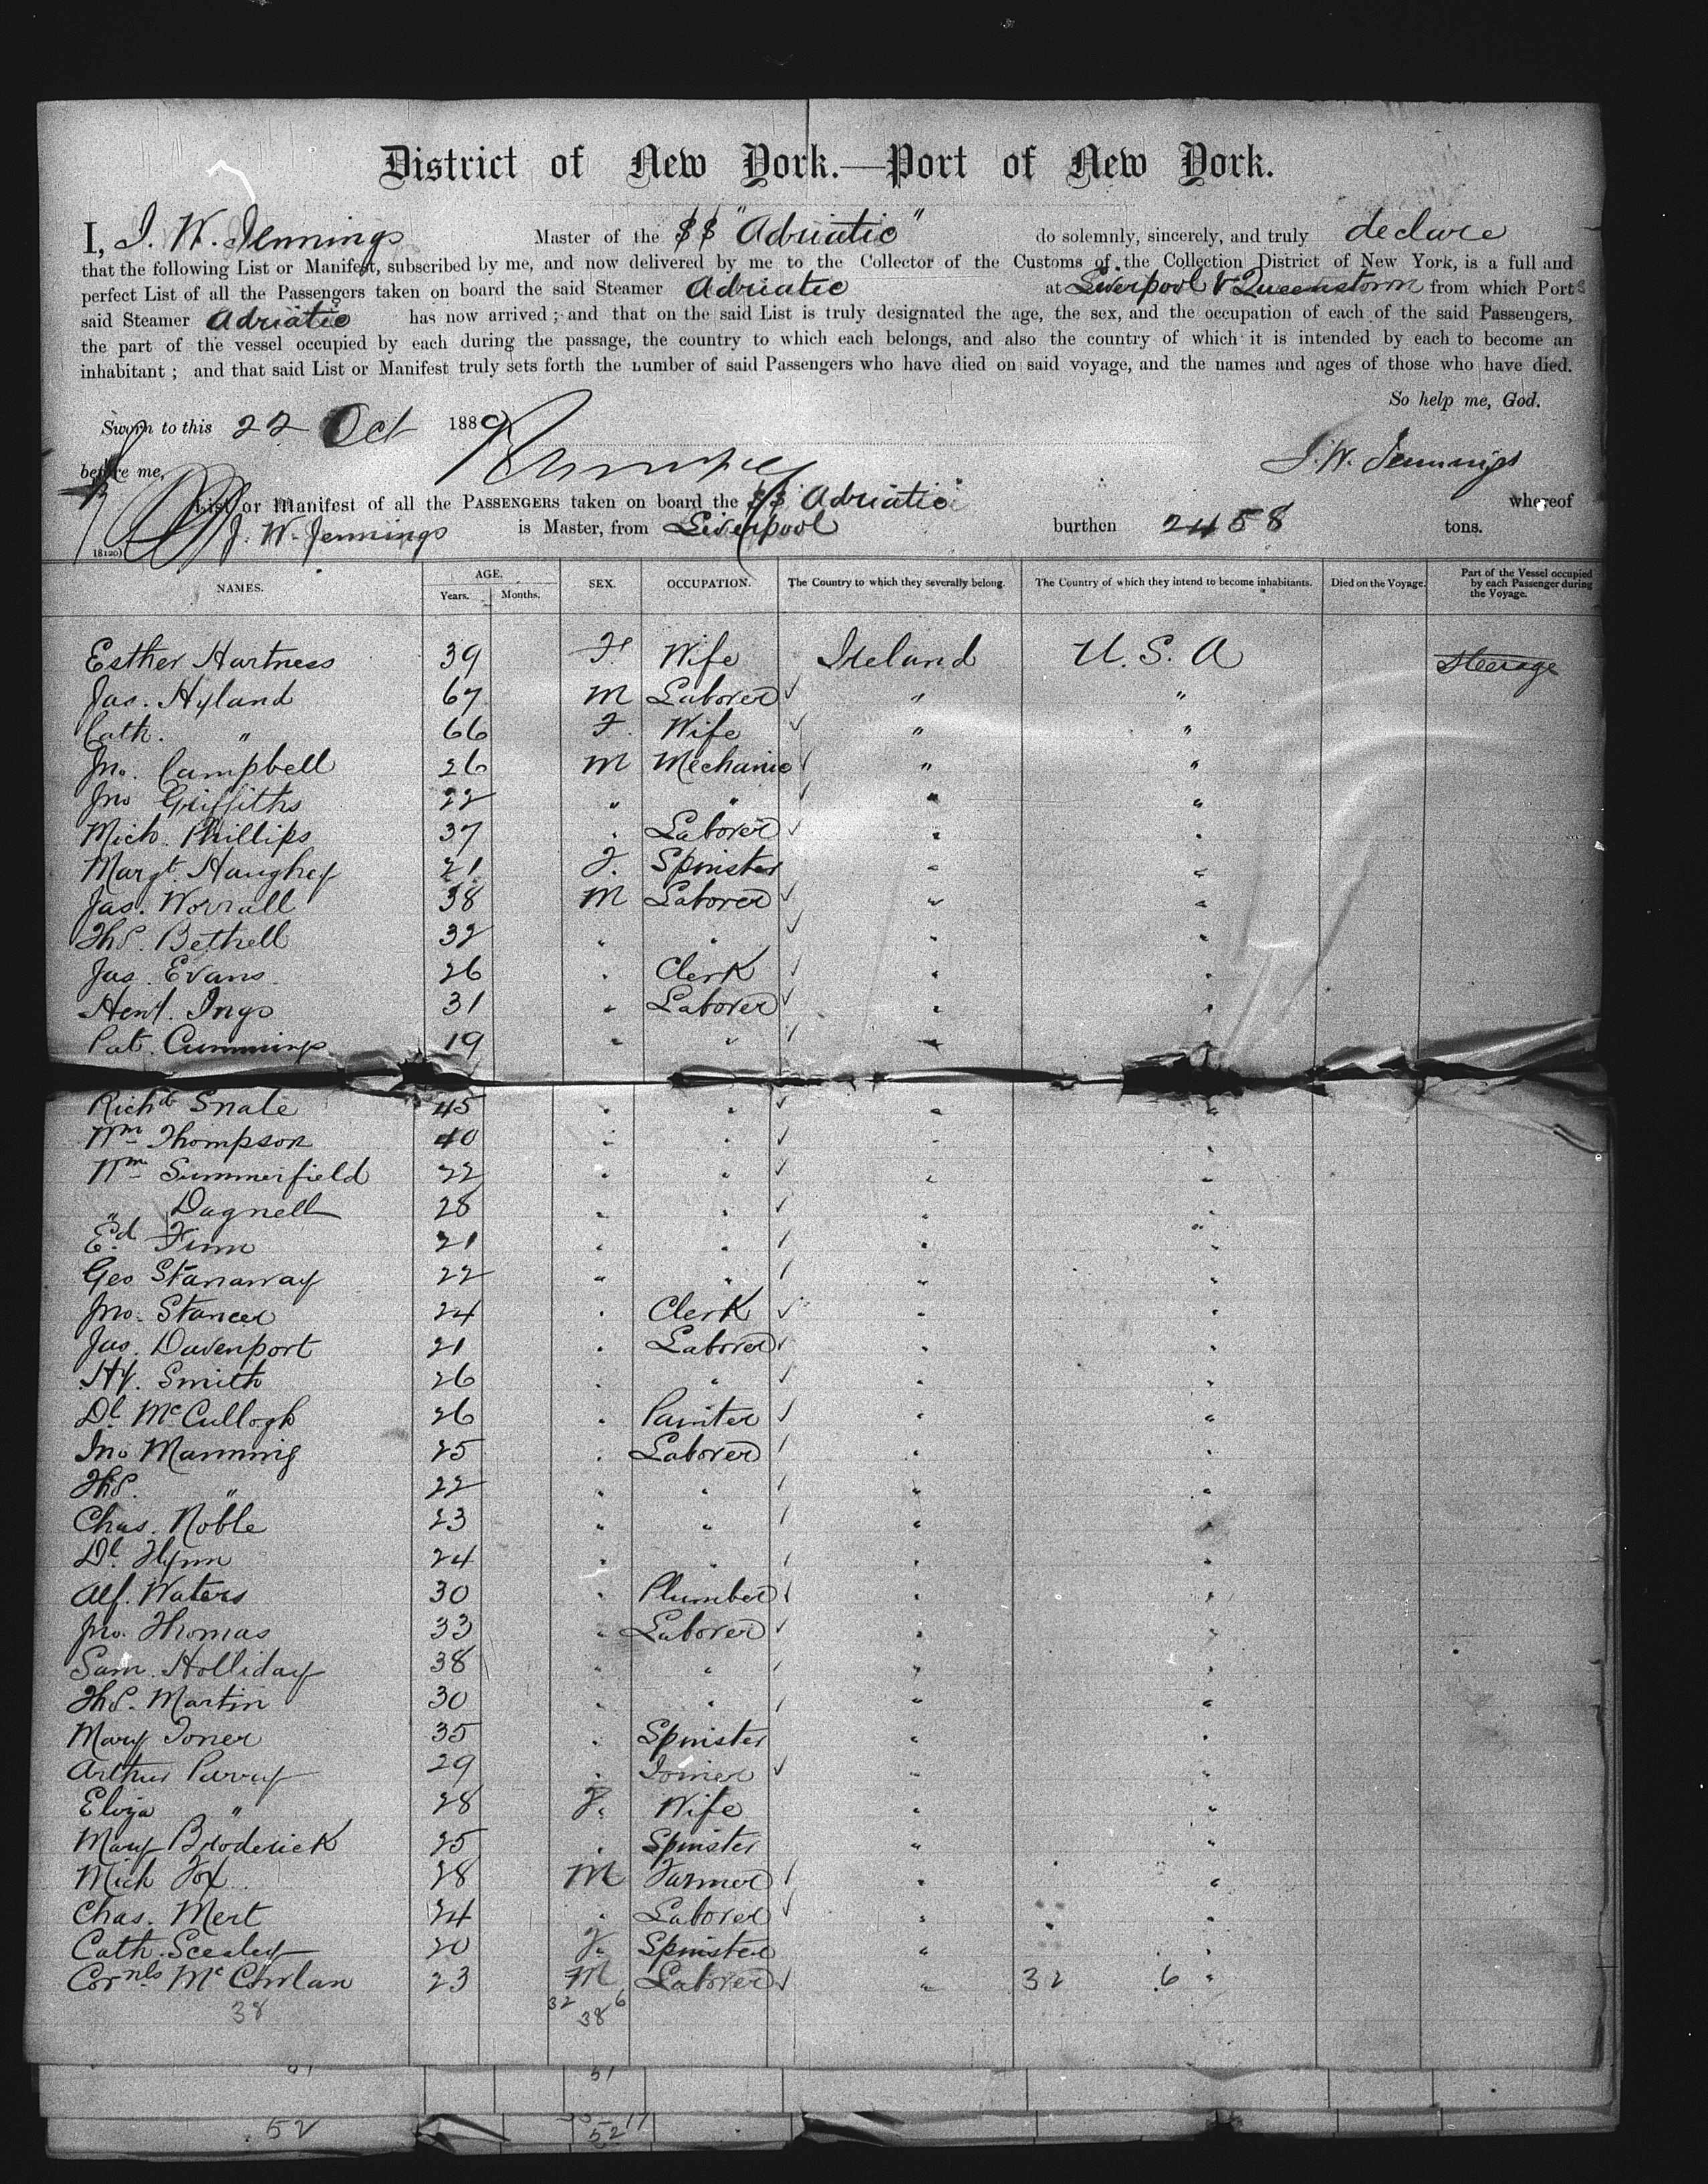 District of New York.—Port of New York.
I, J. W. Jennings Master of the SS "Adriatic" do solemnly, sincerely, and truly declare
that the following List or Manifest, subscribed by me, and now delivered by me to the Collector of the Customs of the Collection District of New York, is a full and
perfect List of all the Passengers taken on board the said Steamer Adriatic at Liverpool & Queenstown from which Ports
said Steamer Adriatic has now arrived; and that on the said List is truly designated the age, the sex, and the occupation of each of the said Passengers,
the part of the vessel occupied by each during the passage, the country to which each belongs, and also the country of which it is intended by each to become an
inhabitant; and that said List or Manifest truly sets forth the number of said Passengers who have died on said voyage, and the names and ages of those who have died.
So help me, God.
Sworn to this 22 Oct 1880
before me, J. W. Jennings
List or Manifest of all the PASSENGERS taken on board the SS Adriatic whereof
J. W. Jennings is Master, from Liverpool burthen 2458 tons.
NAMES. AGE. Years. Months. SEX. OCCUPATION. The Country to which they severally belong. The Country of which they intend to become inhabitants. Died on the Voyage. Part of the Vessel occupied by each Passenger during the Voyage.
Esther Hartness 39 F. Wife Ireland U. S. A Steerage
Jas. Hyland 67 M Laborer ✓ " "
Cath. " 66 F. Wife ✓ " "
Jno. Campbell 26 M Mechanic ✓ " "
Jno Griffiths 22 " " ✓ " "
Mich. Phillips 37 " Laborer ✓ " "
Margt. Haughey 21 F. Spinster " "
Jas. Worrall 38 M Laborer ✓ " "
Ths. Bethell 32 " " ✓ " "
Jas. Evans 26 " Clerk ✓ " "
Hen'. Ings 31 " Laborer ✓ " "
Pat. Cummings 19 " " ✓ " "
Richd Snale 45 " " ✓ " "
Wm Thompson 40 " " ✓ " "
Wm Summerfield 22 " " ✓ " "
" Dagnell 28 " " ✓ " "
Ed Finn 21 " " ✓ " "
Geo Stanaway 22 " " ✓ " "
Jno. Stancer 24 " Clerk ✓ " "
Jas. Davenport 21 " Laborer ✓ " "
Hy. Smith 26 " " ✓ " "
Dl. McCullogh 26 " Painter ✓ " "
Jno Manning 25 " Laborer ✓ " "
Ths. " 22 " " ✓ " "
Chas. Noble 23 " " ✓ " "
Dl. Flynn 24 " " ✓ " "
Alf. Waters 30 " Plumber ✓ " "
Jno. Thomas 33 " Laborer ✓ " "
Sam. Holliday 38 " " ✓ " "
Ths. Martin 30 " " ✓ " "
Mary Toner 35 " Spinster " "
Arthur Parry 29 " Joiner ✓ " "
Eliza " 28 F. Wife " "
Mary Broderick 25 " Spinster " "
Mich Fox 28 M Farmer ✓ " "
Chas. Mert 24 " Laborer ✓ " "
Cath. Scealey 20 F. Spinster " "
Cornls McConlan 23 M Laborer ✓ " 32 6 "
38 32 6
38
51
52 52